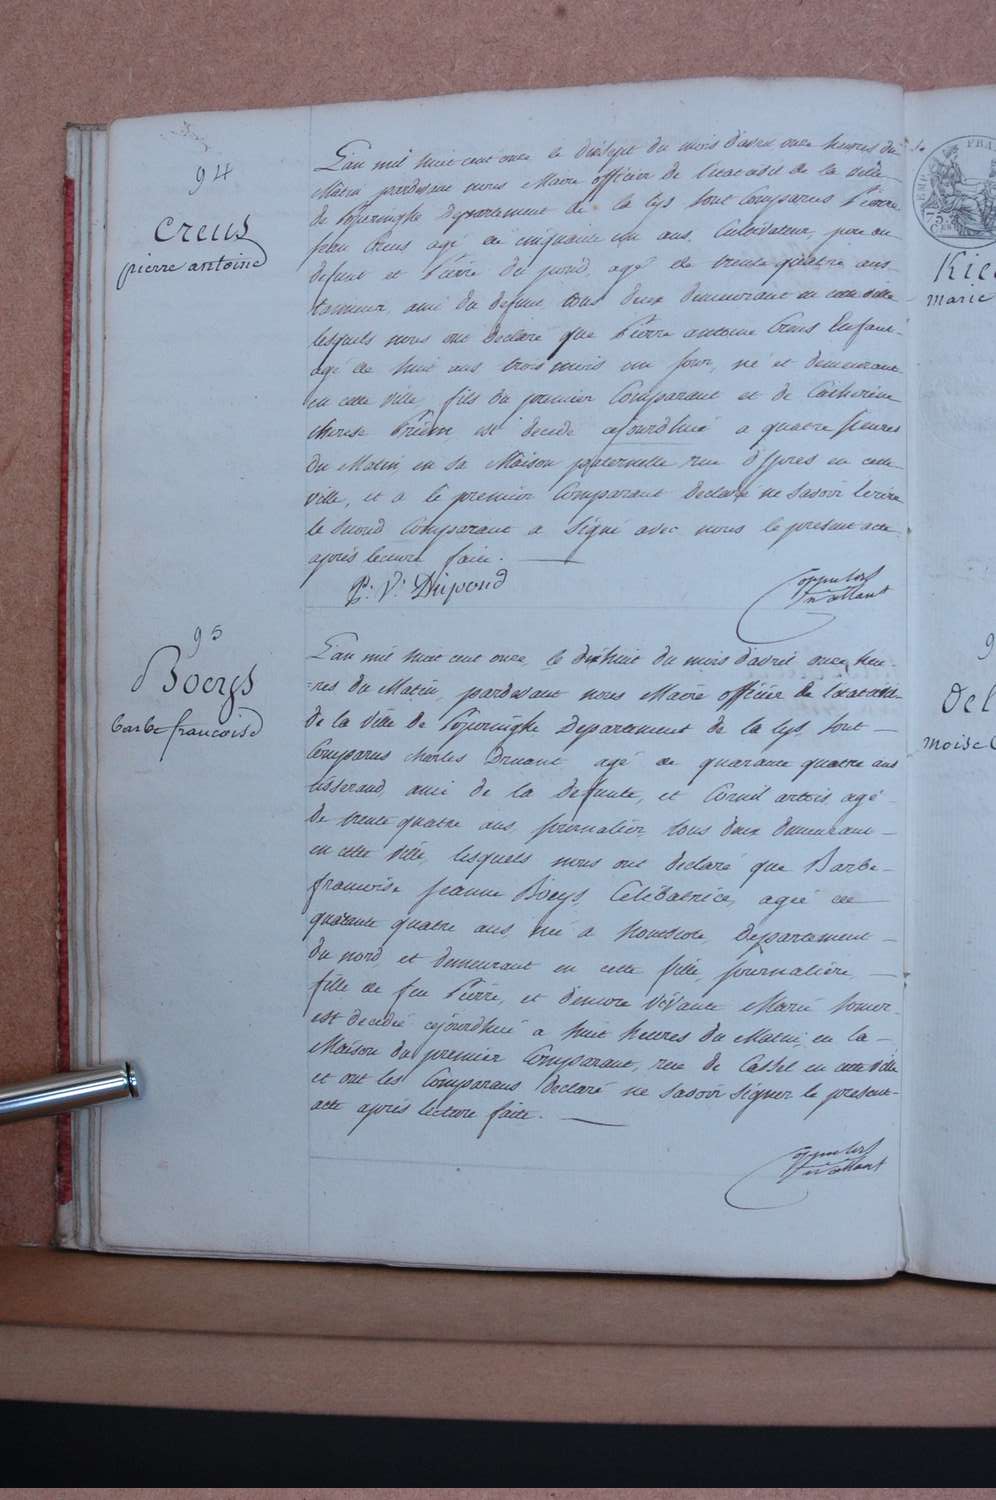 94
Creus
pierre antoine
L'an mil huit cent onze le dixsept du mois d'avril onze heures du
Matin pardevant nous Maire officier de l'etat civil de la ville
de Poperinghe Département de la lys sont Comparus Pierre
Creus agé de cinquante un ans, Cultivateur, pere du
defunt et Pierre Du pond, agé de trente quatre ans
tanneur, ami du defunt, tous deux demeurant en cette ville
lesquels nous ont Declaré que Pierre antoine Creus Enfant
agé de huit ans trois mois un jour, né et demeurant
en cette ville fils du premier Comparant et de Catherine
therese est decedé cejourdhui a quatre heures
du Matin en sa Maison paternelle rue d'Ypres en cette
ville, et a le premier Comparant declaré ne savoir Ecrire
le second Comparant a Signé avec nous le present acte
après lecture faite.
P. V. Dupond
95
Boeys
barbe francoise
L'an mil huit cent onze, le dixhuit du mois d'avril onze heu-
=res du Matin, pardevant nous Maire officier de l'etat civil
de la ville de Poperinghe Département de la lys, sont
Comparus Charles Druant agé de quarante quatre ans
tisserand, ami de la defunte, et Cornil artois, agé
de trente quatre ans, journalier, tous deux demeurant
en cette ville, lesquels nous ont declaré que Barbe
francoise jeanne Boeys, Celibatrice, agée de
quarante quatre ans, née a hontschote, Département
du nord, et demeurant en cette ville, journalière,
fille de feu Pierre, et d'encore vivante Marie
est decedée cejourdhui a huit heures du Matin en la
Maison du premier Comparant, rue de Cassel en cette ville
et ont les Comparans declaré ne savoir signer le present
acte après lecture faite.